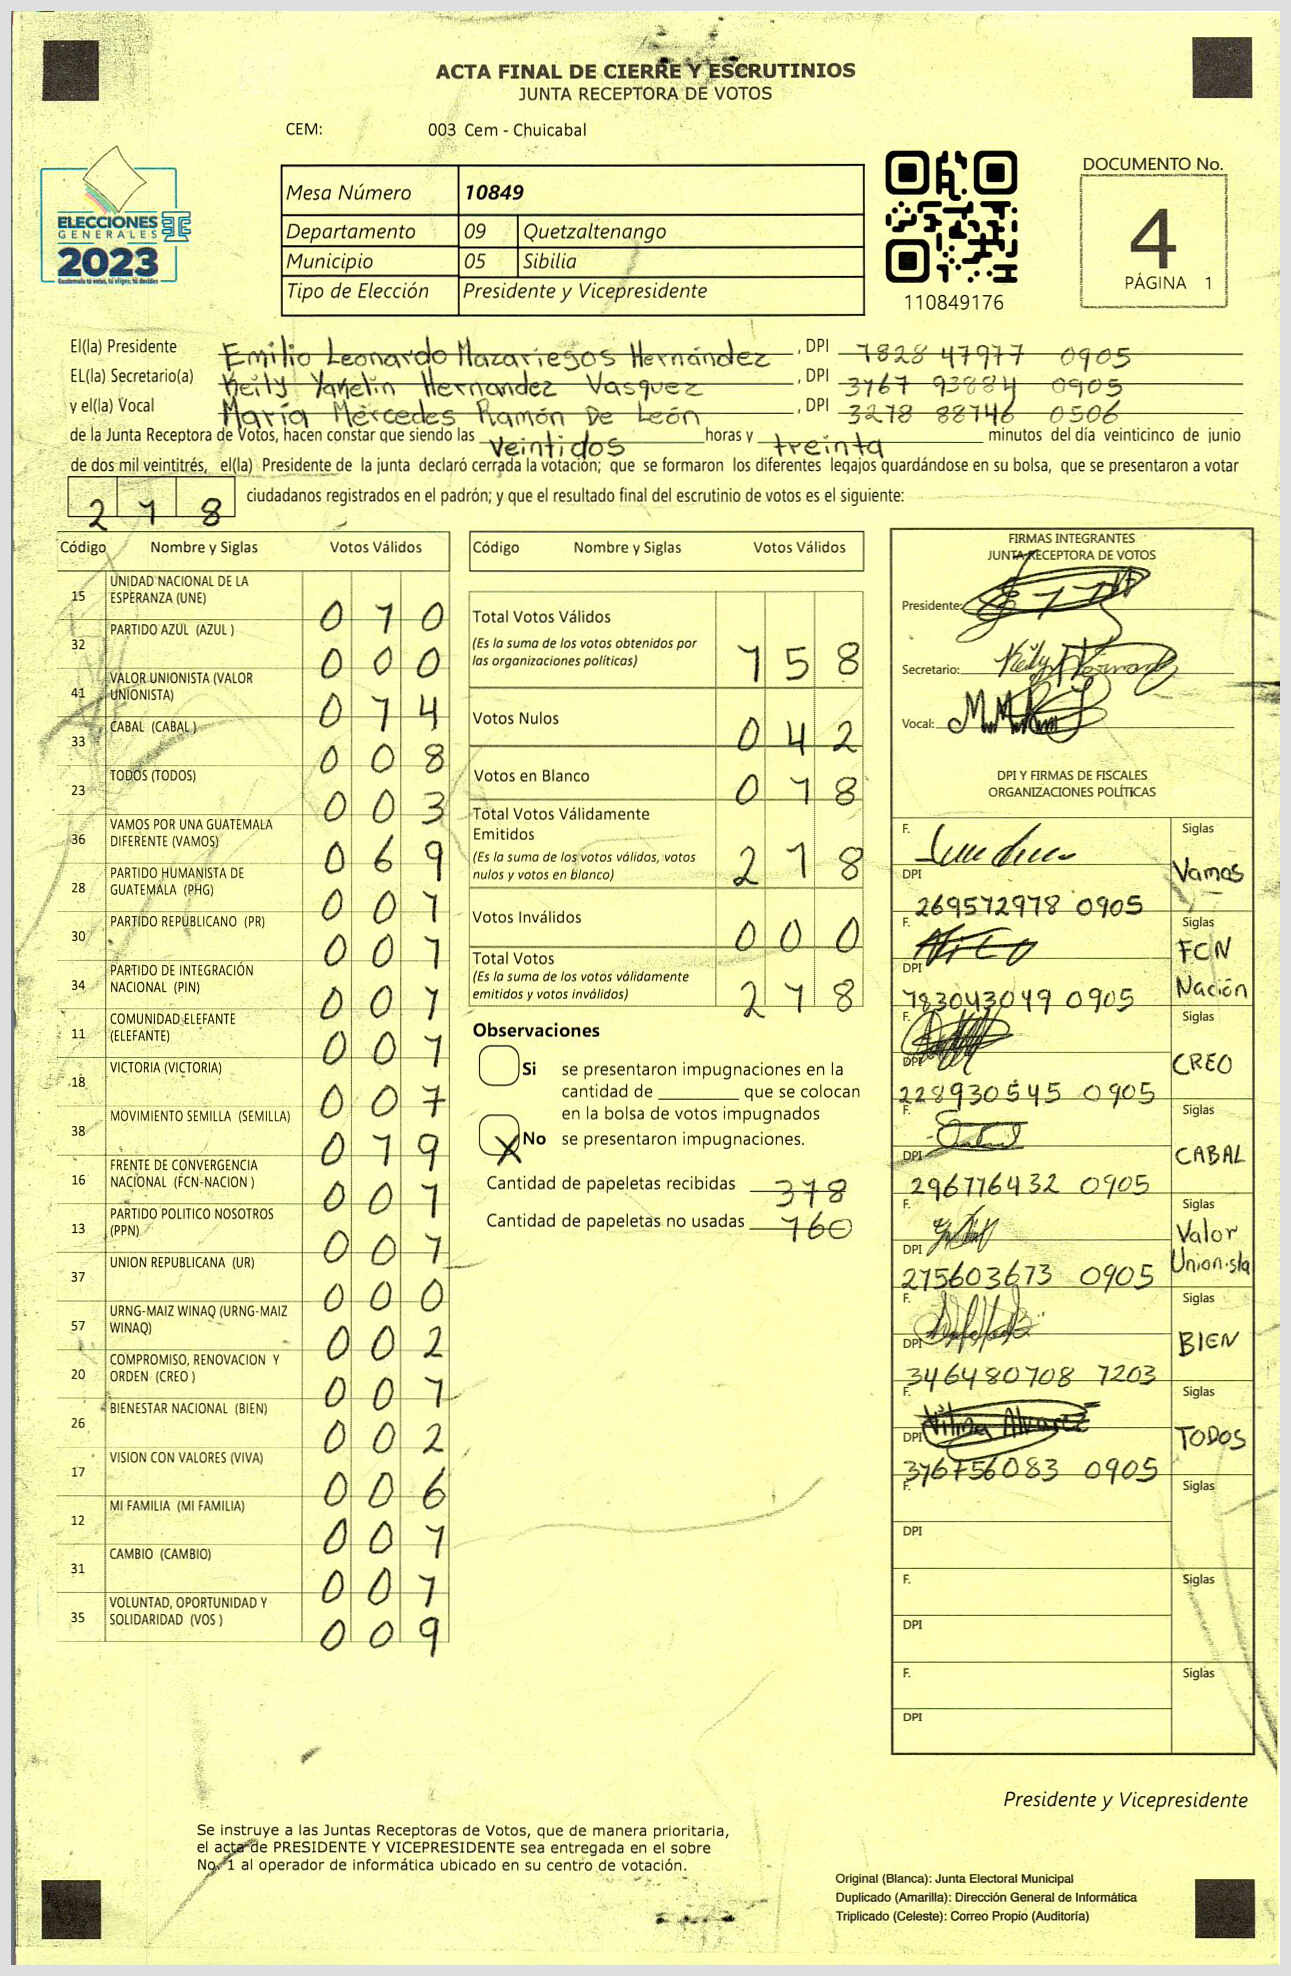 ACTA FINAL DE CIERRE Y ESCRUTINIOS
JUNTA RECEPTORA DE VOTOS
CEM: 003 Cem - Chuicabal
ELECCIONES
GENERALES
2023
Guatemala tú votas, tú eliges, tú decides
Mesa Número 10849
Departamento 09 Quetzaltenango
Municipio 05 Sibilia
Tipo de Elección Presidente y Vicepresidente
110849176
DOCUMENTO No.
4
PÁGINA 1
El(la) Presidente Emilio Leonardo Mazariegos Hernández , DPI 1828 47977 0905
EL(la) Secretario(a) Keily Yakelin Hernandez Vasquez , DPI 3167 93884 0905
y el(la) Vocal María Mercedes Ramón De León , DPI 3278 88746 0506
de la Junta Receptora de Votos, hacen constar que siendo las veintidos horas y treinta minutos del día veinticinco de junio
de dos mil veintitrés, el(la) Presidente de la junta declaró cerrada la votación; que se formaron los diferentes legajos guardándose en su bolsa, que se presentaron a votar
2 1 8 ciudadanos registrados en el padrón; y que el resultado final del escrutinio de votos es el siguiente:
Código Nombre y Siglas Votos Válidos
15 UNIDAD NACIONAL DE LA ESPERANZA (UNE) 0 1 0
32 PARTIDO AZUL (AZUL ) 0 0 0
41 VALOR UNIONISTA (VALOR UNIONISTA) 0 1 4
33 CABAL (CABAL ) 0 0 8
23 TODOS (TODOS) 0 0 3
36 VAMOS POR UNA GUATEMALA DIFERENTE (VAMOS) 0 6 9
28 PARTIDO HUMANISTA DE GUATEMALA (PHG) 0 0 1
30 PARTIDO REPUBLICANO (PR) 0 0 1
34 PARTIDO DE INTEGRACIÓN NACIONAL (PIN) 0 0 1
11 COMUNIDAD ELEFANTE (ELEFANTE) 0 0 1
18 VICTORIA (VICTORIA) 0 0 7
38 MOVIMIENTO SEMILLA (SEMILLA) 0 1 9
16 FRENTE DE CONVERGENCIA NACIONAL (FCN-NACION ) 0 0 1
13 PARTIDO POLITICO NOSOTROS (PPN) 0 0 1
37 UNION REPUBLICANA (UR) 0 0 0
57 URNG-MAIZ WINAQ (URNG-MAIZ WINAQ) 0 0 2
20 COMPROMISO, RENOVACION Y ORDEN (CREO ) 0 0 1
26 BIENESTAR NACIONAL (BIEN) 0 0 2
17 VISION CON VALORES (VIVA) 0 0 6
12 MI FAMILIA (MI FAMILIA) 0 0 1
31 CAMBIO (CAMBIO) 0 0 1
35 VOLUNTAD, OPORTUNIDAD Y SOLIDARIDAD (VOS ) 0 0 9
Código Nombre y Siglas Votos Válidos
Total Votos Válidos 1 5 8
(Es la suma de los votos obtenidos por
las organizaciones políticas)
Votos Nulos 0 4 2
Votos en Blanco 0 1 8
Total Votos Válidamente
Emitidos 2 1 8
(Es la suma de los votos válidos, votos
nulos y votos en blanco)
Votos Inválidos 0 0 0
Total Votos 2 1 8
(Es la suma de los votos válidamente
emitidos y votos inválidos)
Observaciones
Si se presentaron impugnaciones en la
cantidad de ________ que se colocan
en la bolsa de votos impugnados
X No se presentaron impugnaciones.
Cantidad de papeletas recibidas 378
Cantidad de papeletas no usadas 160
FIRMAS INTEGRANTES
JUNTA RECEPTORA DE VOTOS
Presidente:
Secretario:
Vocal:
DPI Y FIRMAS DE FISCALES
ORGANIZACIONES POLÍTICAS
F. Siglas
DPI Vamos
269572978 0905
F. Siglas
DPI FCN Nación
783043049 0905
F. Siglas
DPI CREO
228930545 0905
F. Siglas
DPI CABAL
296776432 0905
F. Siglas
DPI Valor Unionista
275603673 0905
F. Siglas
DPI BIEN
346480708 1203
F. Vilma Alvarez Siglas
DPI TODOS
376756083 0905
F. Siglas
DPI
F. Siglas
DPI
F. Siglas
DPI
Presidente y Vicepresidente
Se instruye a las Juntas Receptoras de Votos, que de manera prioritaria,
el acta de PRESIDENTE Y VICEPRESIDENTE sea entregada en el sobre
No. 1 al operador de informática ubicado en su centro de votación.
Original (Blanca): Junta Electoral Municipal
Duplicado (Amarilla): Dirección General de Informática
Triplicado (Celeste): Correo Propio (Auditoría)